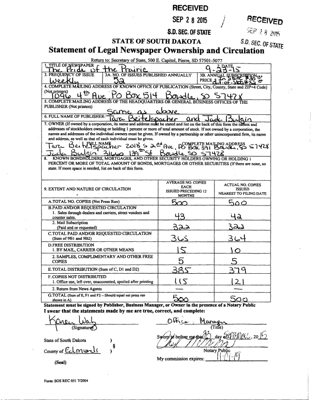 RECEIVED
SEP 28 2015
S.D. SEC. OF STATE
RECEIVED
SEP 28 2015
S.D. SEC. OF STATE
STATE OF SOUTH DAKOTA
Statement of Legal Newspaper Ownership and Circulation
Return to: Secretary of State, 500 E. Capitol, Pierre, SD 57501-5077
1. TITLE OF NEWSPAPER
The Pride of the Prairie
2. DATE
9-23-15
3. FREQUENCY OF ISSUE
Weekly
3A. NO. OF ISSUES PUBLISHED ANNUALLY
52
3B. ANNUAL SUBSCRIPTION
PRICE
4. COMPLETE MAILING ADDRESS OF KNOWN OFFICE OF PUBLICATION (Street, City, County, State and ZIP+4 Code)
(Not printers)
PO Box 514 Bowdle, SD 57428
5. COMPLETE MAILING ADDRESS OF THE HEADQUARTERS OR GENERAL BUSINESS OFFICES OF THE
PUBLISHER (Not printers)
same as above
6. FULL NAME OF PUBLISHER
Tara Beitelspacher and
7. OWNER (If owned by a corporation, its name and address must be stated and
addresses of stockholders owning or holding 1 percent or more of total amount of stock. If not owned by a corporation, the
names and addresses of the individual owners must be given. If owned by a partnership or other unincorporated firm, its name
and address, as well as that of each individual must be given.
FULL NAME
COMPLETE MAILING ADDRESS
Tara Beitelspacher
Bowdle, SD 57428
8. KNOWN BONDHOLDERS, MORTGAGES, AND OTHER SECURITY HOLDERS OWNING OR HOLDING 1
PERCENT OR MORE OF TOTAL AMOUNT OF BONDS, MORTGAGES OR OTHER SECURITIES (If there are none, so
state. If more space is needed, list on back of this form.
9. EXTENT AND NATURE OF CIRCULATION
AVERAGE NO. COPIES
EACH
ISSUED PRECEDING 12
MONTHS
ACTUAL NO. COPIES
ISSUED
NEAREST TO FILING DATE
A. TOTAL NO. COPIES (Net Press Run)
500
500
B. PAID AND/OR REQUESTED CIRCULATION
1. Sales through dealers and carriers, street vendors and
counter sales.
43
42
2. Mail Subscription
(Paid and or requested)
322
322
C. TOTAL PAID AND/OR REQUESTED CIRCULATION
(Sum of 9B1 and 9B2)
365
364
D. FREE DISTRIBUTION
1. BY MAIL, CARRIER OR OTHER MEANS
15
10
2. SAMPLES, COMPLIMENTARY AND OTHER FREE
COPIES
5
5
E. TOTAL DISTRIBUTION (Sum of C, D1 and D2)
385
379
F. COPIES NOT DISTRIBUTED
1. Office use, left over, unaccounted, spoiled after printing
115
121
2. Return from News Agents
—
—
G. TOTAL (Sum of E, F1 and F2 – Should equal net press run
shown in A)
500
500
Statement must be signed by Publisher, Business Manager, or Owner in the presence of a Notary Public
I swear that the statements made by me are true, correct, and complete:
(Signature)
Office Manager
(Title)
State of South Dakota )
County of Edmunds )
Notary Public
(Seal)
My commission expires: